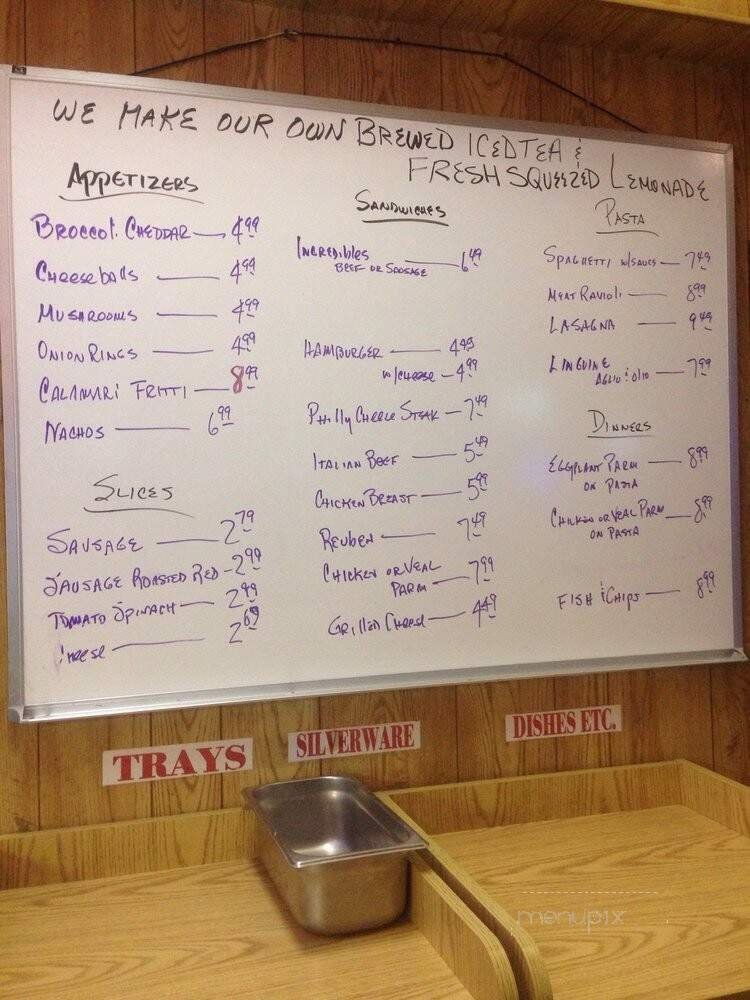 WE MAKE OUR OWN BREWED ICED TEA &
FRESH SQUEEZED LEMONADE
APPETIZERS
BROCCOLI CHEDDAR — 4.99
CHEESEBALLS — 4.99
MUSHROOMS — 4.99
ONION RINGS — 4.99
CALAMARI FRITTI — 8.99
NACHOS — 6.99
SLICES
SAUSAGE — 2.79
SAUSAGE ROASTED RED - 2.99
TOMATO SPINACH — 2.99
CHEESE — 2.69
SANDWICHES
INCREDIBLES — 6.49
BEEF OR SAUSAGE
HAMBURGER — 4.49
W/CHEESE — 4.99
PHILLY CHEESE STEAK — 7.49
ITALIAN BEEF — 5.49
CHICKEN BREAST — 5.99
REUBEN — 7.49
CHICKEN OR VEAL
PARM — 7.99
GRILLED CHEESE — 4.49
PASTA
SPAGHETTI W/SAUCE — 7.49
MEAT RAVIOLI — 8.99
LASAGNA — 9.49
LINGUINE — 7.99
AGLIO & OLIO
DINNERS
EGGPLANT PARM — 8.99
ON PASTA
CHICKEN OR VEAL PARM — 8.99
ON PASTA
FISH & CHIPS — 8.99
TRAYS
SILVERWARE
DISHES ETC.
menupix